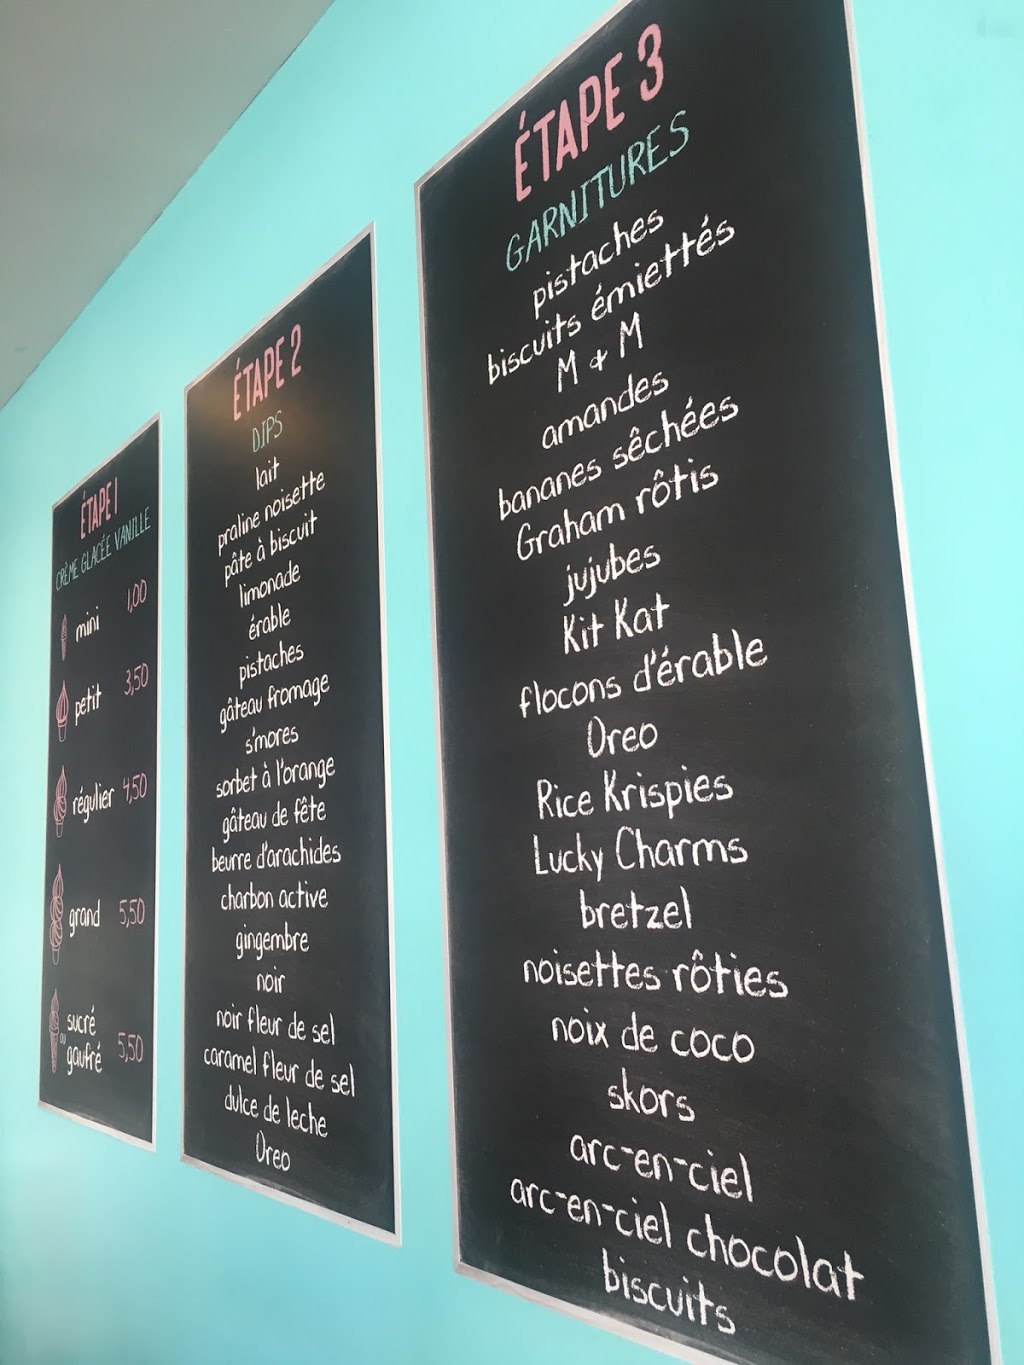 ÉTAPE 1
CRÈME GLACÉE VANILLE
mini 1,00
petit 3,50
régulier 4,50
grand 5,50
sucré
ou
gaufré 5,50
ÉTAPE 2
DIPS
lait
praline noisette
pâte à biscuit
limonade
érable
pistaches
gâteau fromage
s'mores
sorbet à l'orange
gâteau de fête
beurre d'arachides
charbon active
gingembre
noir
noir fleur de sel
caramel fleur de sel
dulce de leche
Oreo
ÉTAPE 3
GARNITURES
pistaches
biscuits émiettés
M & M
amandes
bananes sêchées
Graham rôtis
jujubes
Kit Kat
flocons d'érable
Oreo
Rice Krispies
Lucky Charms
bretzel
noisettes rôties
noix de coco
skors
arc-en-ciel
arc-en-ciel chocolat
biscuits